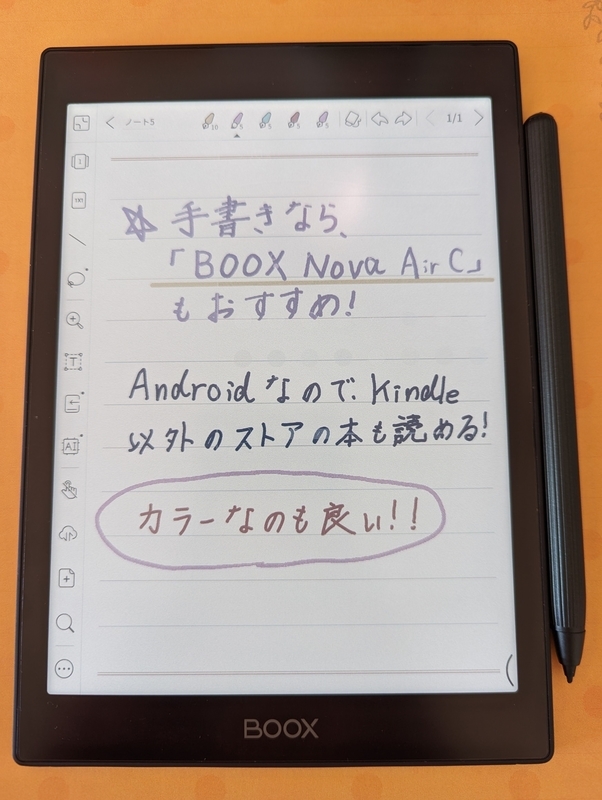 ノート5
10 5 5 5 5
1/1
☆ 手書きなら、
「BOOX Nova Air C」
もおすすめ!
Androidなので、Kindle
以外のストアの本も読める!
カラーなのも良い!!
BOOX